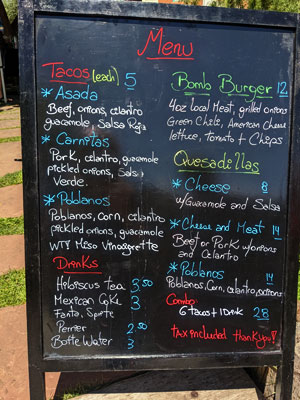 Menu
Tacos (each) 5
* Asada
Beef, onions, cilantro
guacamole, Salsa Roja
* Carnitas
Pork, cilantro, guacamole
pickled onions, Salsa
Verde.
* Poblanos
Poblanos, Corn, cilantro
pickled onions, guacamole
WTF Miso Vinaigrette
Drinks
Hibiscus tea 3 50
Mexican Coke 3
Fanta, Sprite
Perrier 2 50
Bottle Water 3
Bomb Burger 12
4oz local Meat, grilled onions
Green Chile, American Cheese
lettuce, tomato + Chips
Quesadillas
* Cheese 8
w/Guacamole and Salsa
* Cheese and Meat 14
Beef or Pork w/onions
and Cilantro
* Poblanos 14
Poblanos, Corn, cilantro, onions
Combo
6 tacos + 1 Drink 28
tax included thank you!